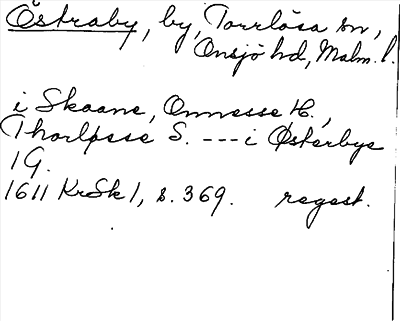 Östraby, by, Torrlösa sn,
Onsjö hd, Malm. l.
i Skaane, Onnesse H.,
Thorløsse S. --- i Østerbye
1 G.
1611 KrSk 1, s. 369. regest.